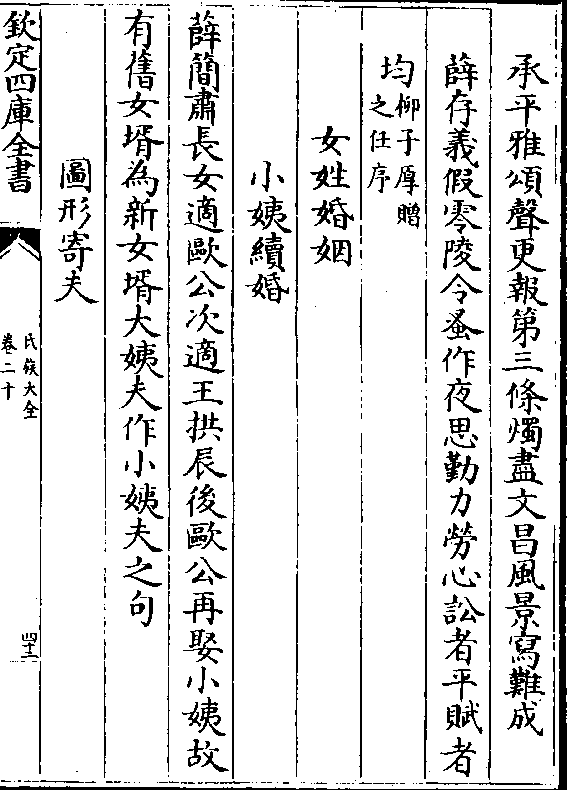 承平雅頌聲更報第三條燭盡文昌風景寫難成
薛存義假零陵令蚤作夜思勤力勞心訟者平賦者
均柳子厚贈
之任序
女姓婚姻
小姨續婚
薛簡肅長女適歐公次適王拱辰後歐公再娶小姨故
有舊女壻為新女壻大姨夫作小姨夫之句
圖形寄夫
欽定四庫全書
氏族大全
卷二十
四十三